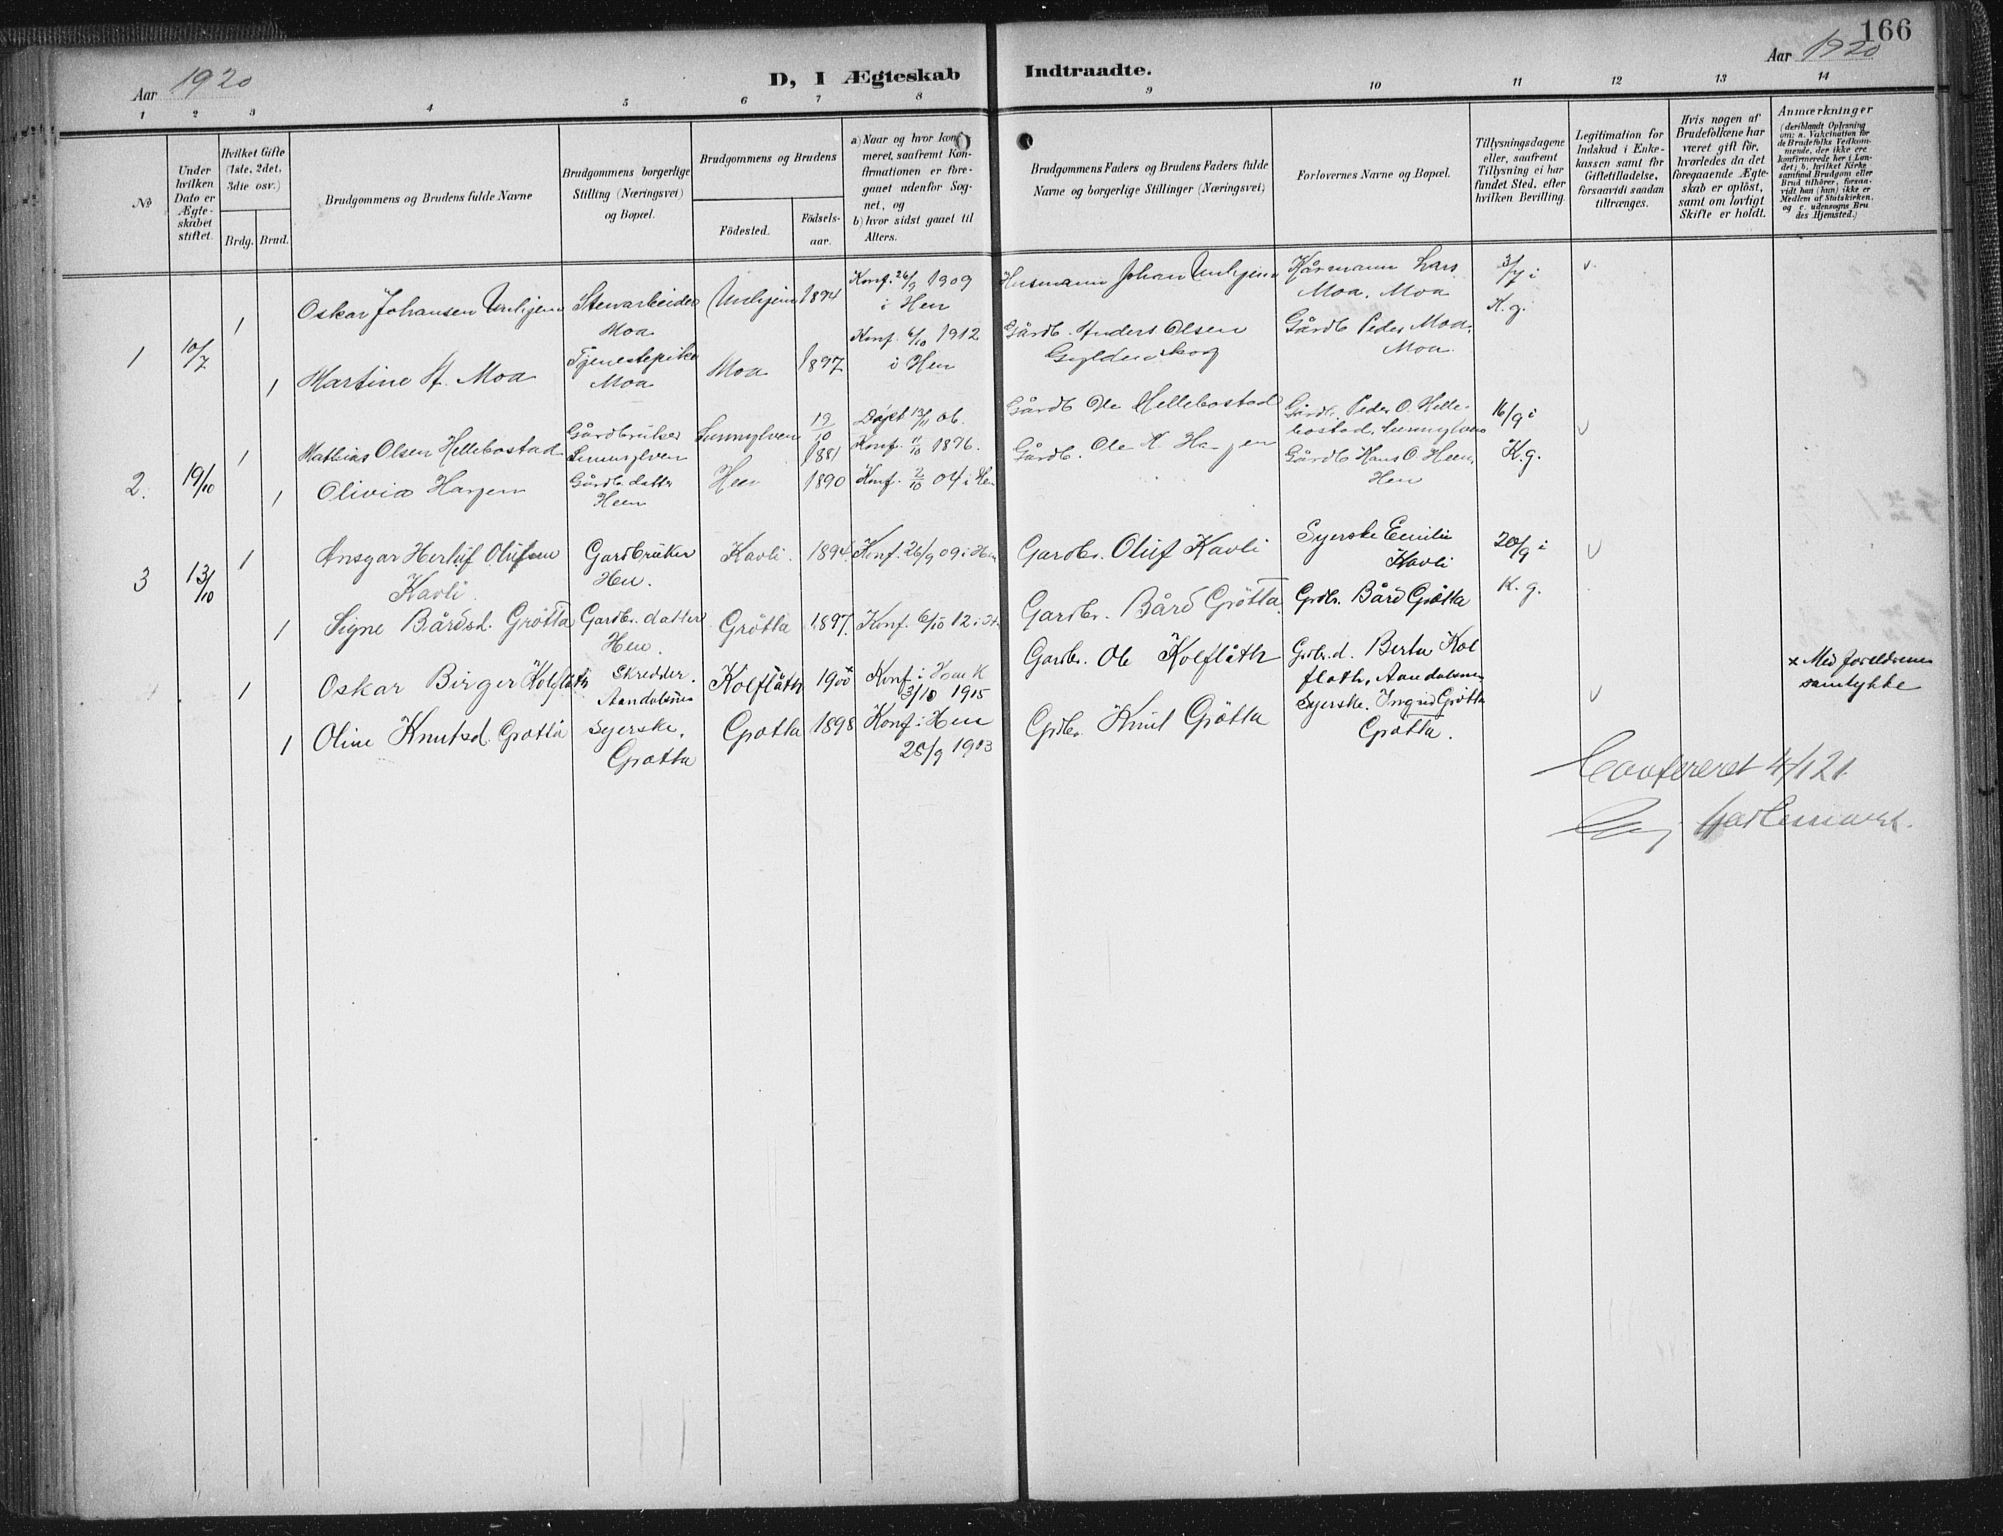 166
Aar 1920
D, I Ægteskab Indtraadte.
Aar 1920
1 2 3 4 5 6 7 8 9 10 11 12 13 14
No
Under hvilken Dato er Ægteskabet stiftet.
Hvilket Gifte (1ste, 2det, 3die osv.)
Brdg. Brud.
Brudgommens og Brudens fulde Navne
Brudgommens borgerlige Stilling (Næringsvei) og Bopæl.
Brudgommens og Brudens
Fødested.
Fødselsaar.
a) Naar og hvor konfirmeret, saafremt Konfirmationen er foregaaet udenfor Sognet, og
b) hvor sidst gaaet til Alters.
Brudgommens Faders og Brudens Faders fulde Navne og borgerlige Stillinger (Næringsvei)
Forlovernes Navne og Bopæl.
Tillysningsdagene eller, saafremt Tillysning ei har fundet Sted, efter hvilken Bevilling.
Legitimation for Indskud i Enkekassen samt for Giftetilladelse, forsaavidt saadan tiltrænges.
Hvis nogen af Brudefolkene har været gift før, hvorledes da det foregaaende Ægteskab er opløst, samt om lovligt Skifte er holdt.
Anmærkninger
(deriblandt Oplysning om: a. Vakcination for de Brudefolks Vedkommende, der ikke ere konfirmerede her i Landet; b. hvilket Kirkesamfund Brudgom eller Brud tilhører, forsaavidt han (hun) ikke er Medlem af Statskirken, og c. udensogns Brudes Hjemsted.)
1 10/7 1 Oskar Johansen Unhjem Stenarbeider Moa Unhjem 1894 Konf. 26/9 1909 i Hen Husmann Johan Unhjem Kårmann Lars Moa, Moa 3/7 i K.g. v
1 Martine A. Moa Tjenestepike Moa Moa 1897 Konf. 6/10 1912 i Hen Gårdb. Anders Olsen Gyldenskog Gårdb. Peder Moa, Moa
2. 19/10 1 Mathias Olsen Hellebostad Gårdbruker Sunnylven Sunnylven 1881 Døpt 13/11 06. Konf. 11/10 1896. Gårdb Ole Hellebostad Gårdb. Peder O. Hellebostad, Sunnylven 16/9 i K.g. v
1 Olivia Hagen Gårdb. datter Heen Heen 1890 Konf. 2/10 04 i Hen Gårdb. Ole K. Hagen Gårdb Hans O. Heen, Hen
3 13/10 1 Ansgar Herluf Olufsen Kavli. Gardbruker Hen. Kavli. 1894. Konf. 26/9 09 i Hen Gardbr. Oluf Kavli Syerske Emilie Kavli 20/9 i K.g. v
1 Signe Bårdsd. Grøtta Gardbr. datter Hen. Grøtta 1897. Konf. 6/10 12 i H Gardbr. Bård Grøtta. Grdbr. Bård Grøtta
1 Oskar Birger Kolflåth Skredder. Aandalsnes Kolflåth 1900 x Konf. i Hen K 3/10 1915 Gardbr. Ole Kolflåth Grdbr.d. Berta Kolflath, Aandalsnes x Med foreldrenes samtykke
1 Oline Knutsd. Grøtta Syerske, Grøtta Grøtta 1898 Konf. i Hen 28/9 1913 Grdbr. Knut Grøtta Syerske. Ingrid Grøtta Grøtta. v
Confereret 4/1 21.